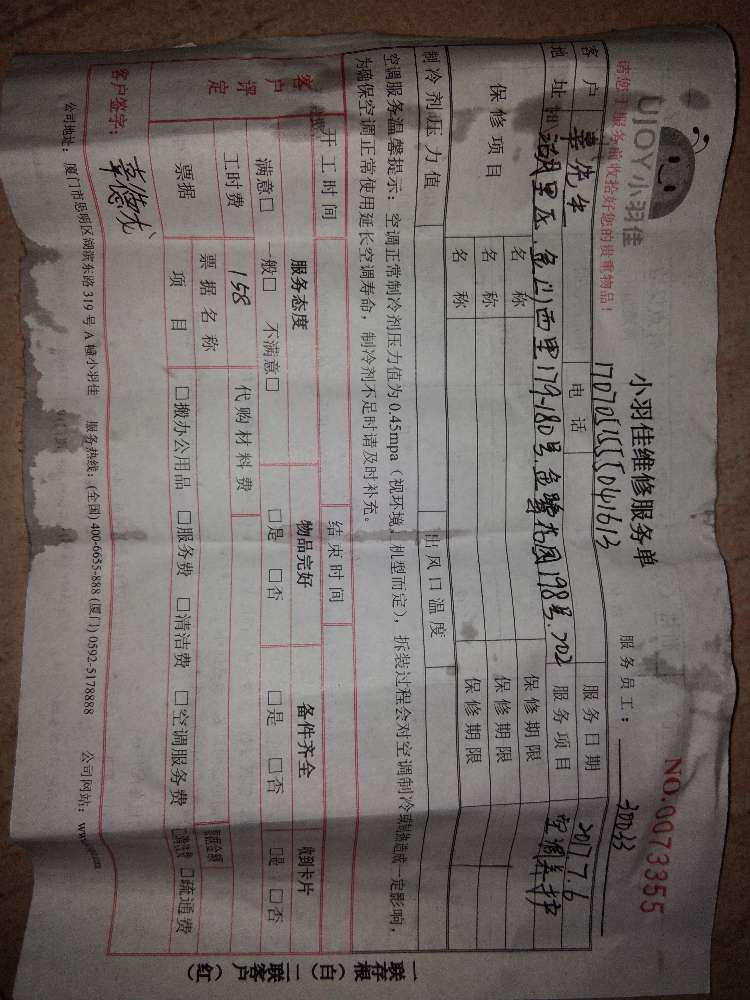 UJOY小羽佳
小羽佳维修服务单
NO.0073355
请您于服务前收拾好您的贵重物品!
服务员工:
客户
先生
电话
服务日期
2017.7.6
地址
湖里区
西里179-180号
198号.702
服务项目
空调养护
保修项目
名称
保修期限
名称
保修期限
名称
保修期限
制冷剂压力值
出风口温度
空调服务温馨提示:空调正常制冷剂压力值为0.45mpa(视环境、机型而定),拆装过程会对空调制冷或制热造成一定影响,
为确保空调正常使用延长空调寿命,制冷剂不足时请及时补充。
开工时间
结束时间
客户评定
服务态度
物品完好
备件齐全
收到卡片
满意□ 一般□ 不满意□
□是 □否
□是 □否
□是 □否
工时费
158
代购材料费
票据
票据名称
票据金额
项目
□搬办公用品 □服务费 □清洁费 □空调服务费
□疏通费
客户签字:
公司地址:厦门市思明区湖滨东路319号A幢小羽佳 服务热线:(全国)400-6655-888 (厦门)0592-5178888 公司网站:
一联存根(白) 二联客户(红)